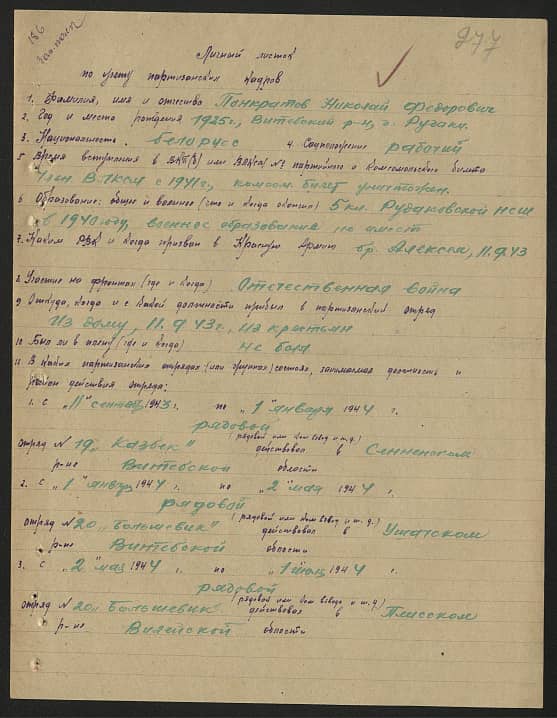 186
277
Личный листок
по учету партизанских кадров
1. Фамилия, имя и отчество Панкратов Николай Федорович
2. Год и место рождения 1925г., Витебский р-н, д. Рудаки.
3. Национальность белорусс 4. Соцположение рабочий
5 Время вступления в ВКП(б) или ВЛКСМ № партийного и комсомольского билета
Член ВЛКСМ с 1941г., комсом. билет уничтожен.
6 Образование: общее и военное (что и когда окончил) 5 кл. Рудаковской НСШ
в 1940 году, военное образование не имеет
7. Каким РВК и когда призван в Красную Армию бр. Алексея, 11.9.43
8. Участие на фронтах (где и когда) Отечественная война
9 Откуда, когда и с какой должности прибыл в партизанский отряд
Из дому, 11.9.43г., из крестьян
10 Был ли в плену (где и когда) не был
11 В каких партизанских отрядах (или группах) состоял, занимаемая должность и
район действия отряда:
1. с "11" сентяб 1943 г. по "1" января 1944 г.
рядовой
(рядовой или ком. взвод и т.д.)
отряд №19 "Казбек" действовал в Сенненском
р-не Витебской области
2. с "1" январ 1944 г. по "2" мая 1944 г.
рядовой
(рядовой или ком взвод и т.д.)
отряд №20 "Большевик" действовал в Ушатском
р-не Витебской области
3. с "2" мая 1944 г. по "1" июл 1944 г.
рядовой
(рядовой или ком взвода и т.д)
отряд №20 "Большевик" действовал в Плисском
р-не Вилейской области